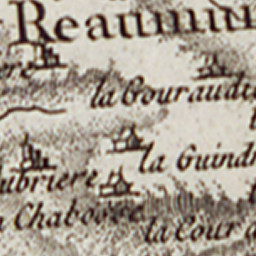 Reaumur
la Gouraudie
la Guindr
ubriere
Chabosse
la Cour d